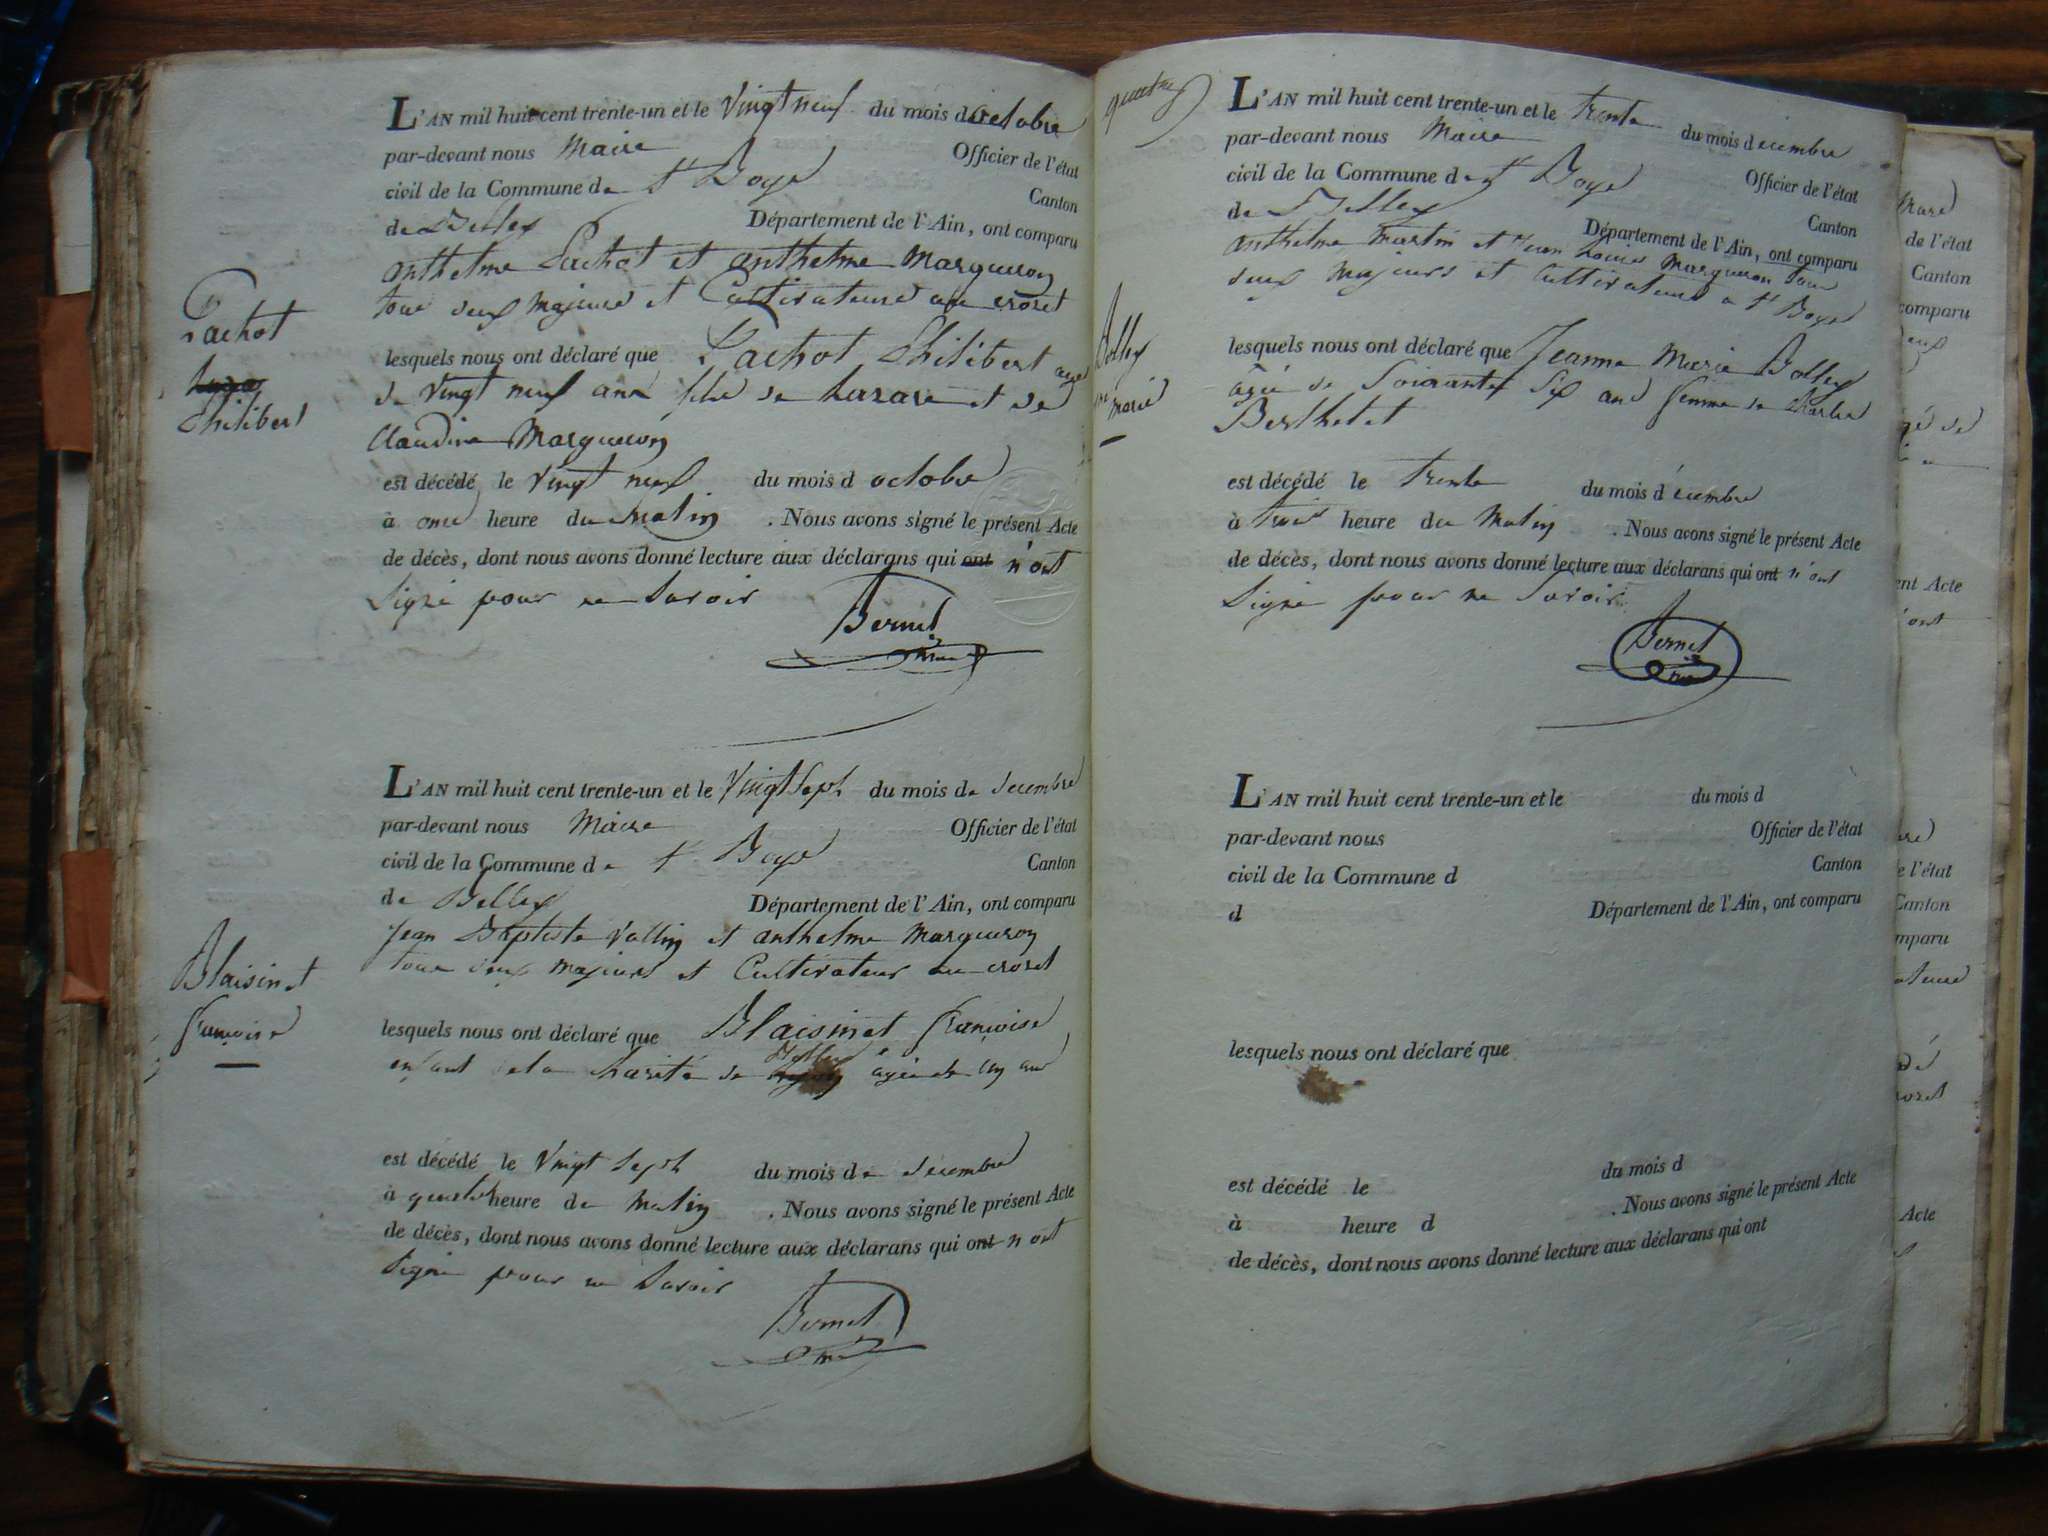 L'AN mil huit cent trente-un et le Vingt neuf du mois d'octobre
par-devant nous Maire Officier de l'état
civil de la Commune de St Boys Canton
de Belley Département de l'Ain, ont comparu
anthelme Pachot et anthelme Margueron
tous deux majeurs et Cultivateurs au crozet
Pachot
Philibert
lesquels nous ont déclaré que Pachot Philibert agé
de vingt neuf ans fils de Lazare et de
Claudine Margueron
est décédé le vingt neuf du mois d octobre
à onze heure du Matin . Nous avons signé le présent Acte
de décès, dont nous avons donné lecture aux déclarans qui ont n'ont
Signé pour ne Savoir
Bernet
L'AN mil huit cent trente-un et le Vingt Sept du mois de decembre
par-devant nous Maire Officier de l'état
civil de la Commune de St Boys Canton
de Belley Département de l'Ain, ont comparu
Jean Baptiste Vallin et anthelme Margueron
tous deux majeurs et Cultivateurs au crozet
Blaisinet
françoise
lesquels nous ont déclaré que Blaisinet françoise
enfant de la charité de Belley agée de un an
est décédé le Vingt Sept du mois de decembre
à quatre heure du matin . Nous avons signé le présent Acte
de décès, dont nous avons donné lecture aux déclarans qui ont n ont
Signé pour ne Savoir
Bernet
quatre
L'AN mil huit cent trente-un et le trente du mois decembre
par-devant nous Maire Officier de l'état
civil de la Commune de St Boys Canton
de Belley Département de l'Ain, ont comparu
anthelme Martin et Jean Louis Margueron tous
deux majeurs et Cultivateurs a St Boys
Bolley
marie
lesquels nous ont déclaré que Jeanne Marie Bolley
agée de Soixante Six ans femme de Charles
Berthelet
est décédé le trente du mois décembre
à trois heure du Matin . Nous avons signé le présent Acte
de décès, dont nous avons donné lecture aux déclarans qui ont n'ont
Signé pour ne Savoir
Bernet
L'AN mil huit cent trente-un et le du mois d
par-devant nous Officier de l'état
civil de la Commune d Canton
d Département de l'Ain, ont comparu
lesquels nous ont déclaré que
est décédé le du mois d
à heure d . Nous avons signé le présent Acte
de décès, dont nous avons donné lecture aux déclarans qui ont
de l'état
Canton
comparu
ent Acte
'ont
e l'état
Canton
mparu
Acte